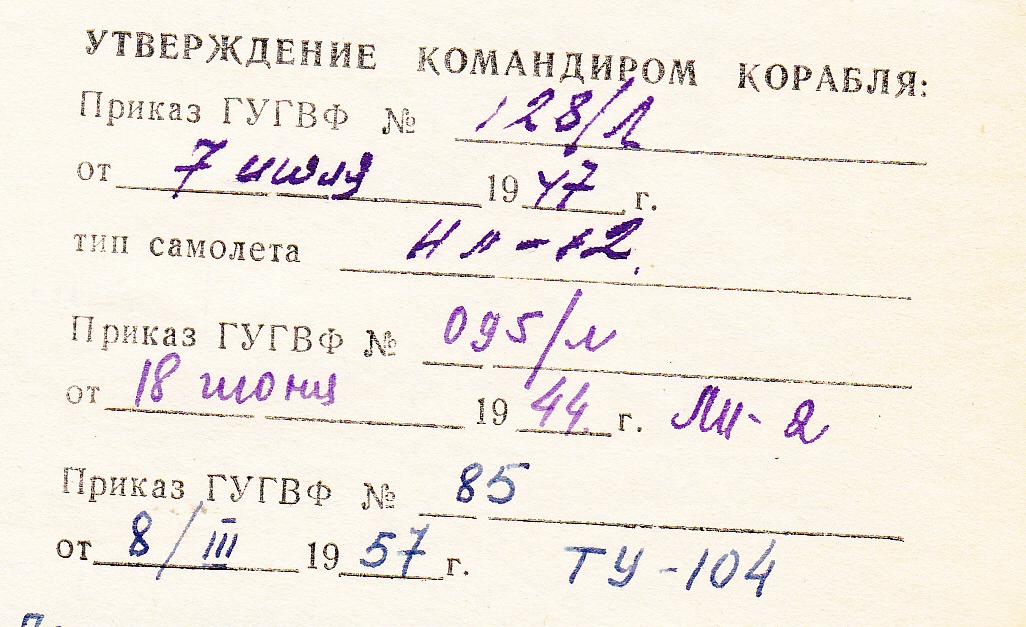 УТВЕРЖДЕНИЕ КОМАНДИРОМ КОРАБЛЯ:
Приказ ГУГВФ № 128/Л
от 7 июля 1947 г.
тип самолета Ил-12.
Приказ ГУГВФ № 095/л
от 18 июня 1944 г. Ли-2
Приказ ГУГВФ № 85
от 8/III 1957 г. ТУ-104